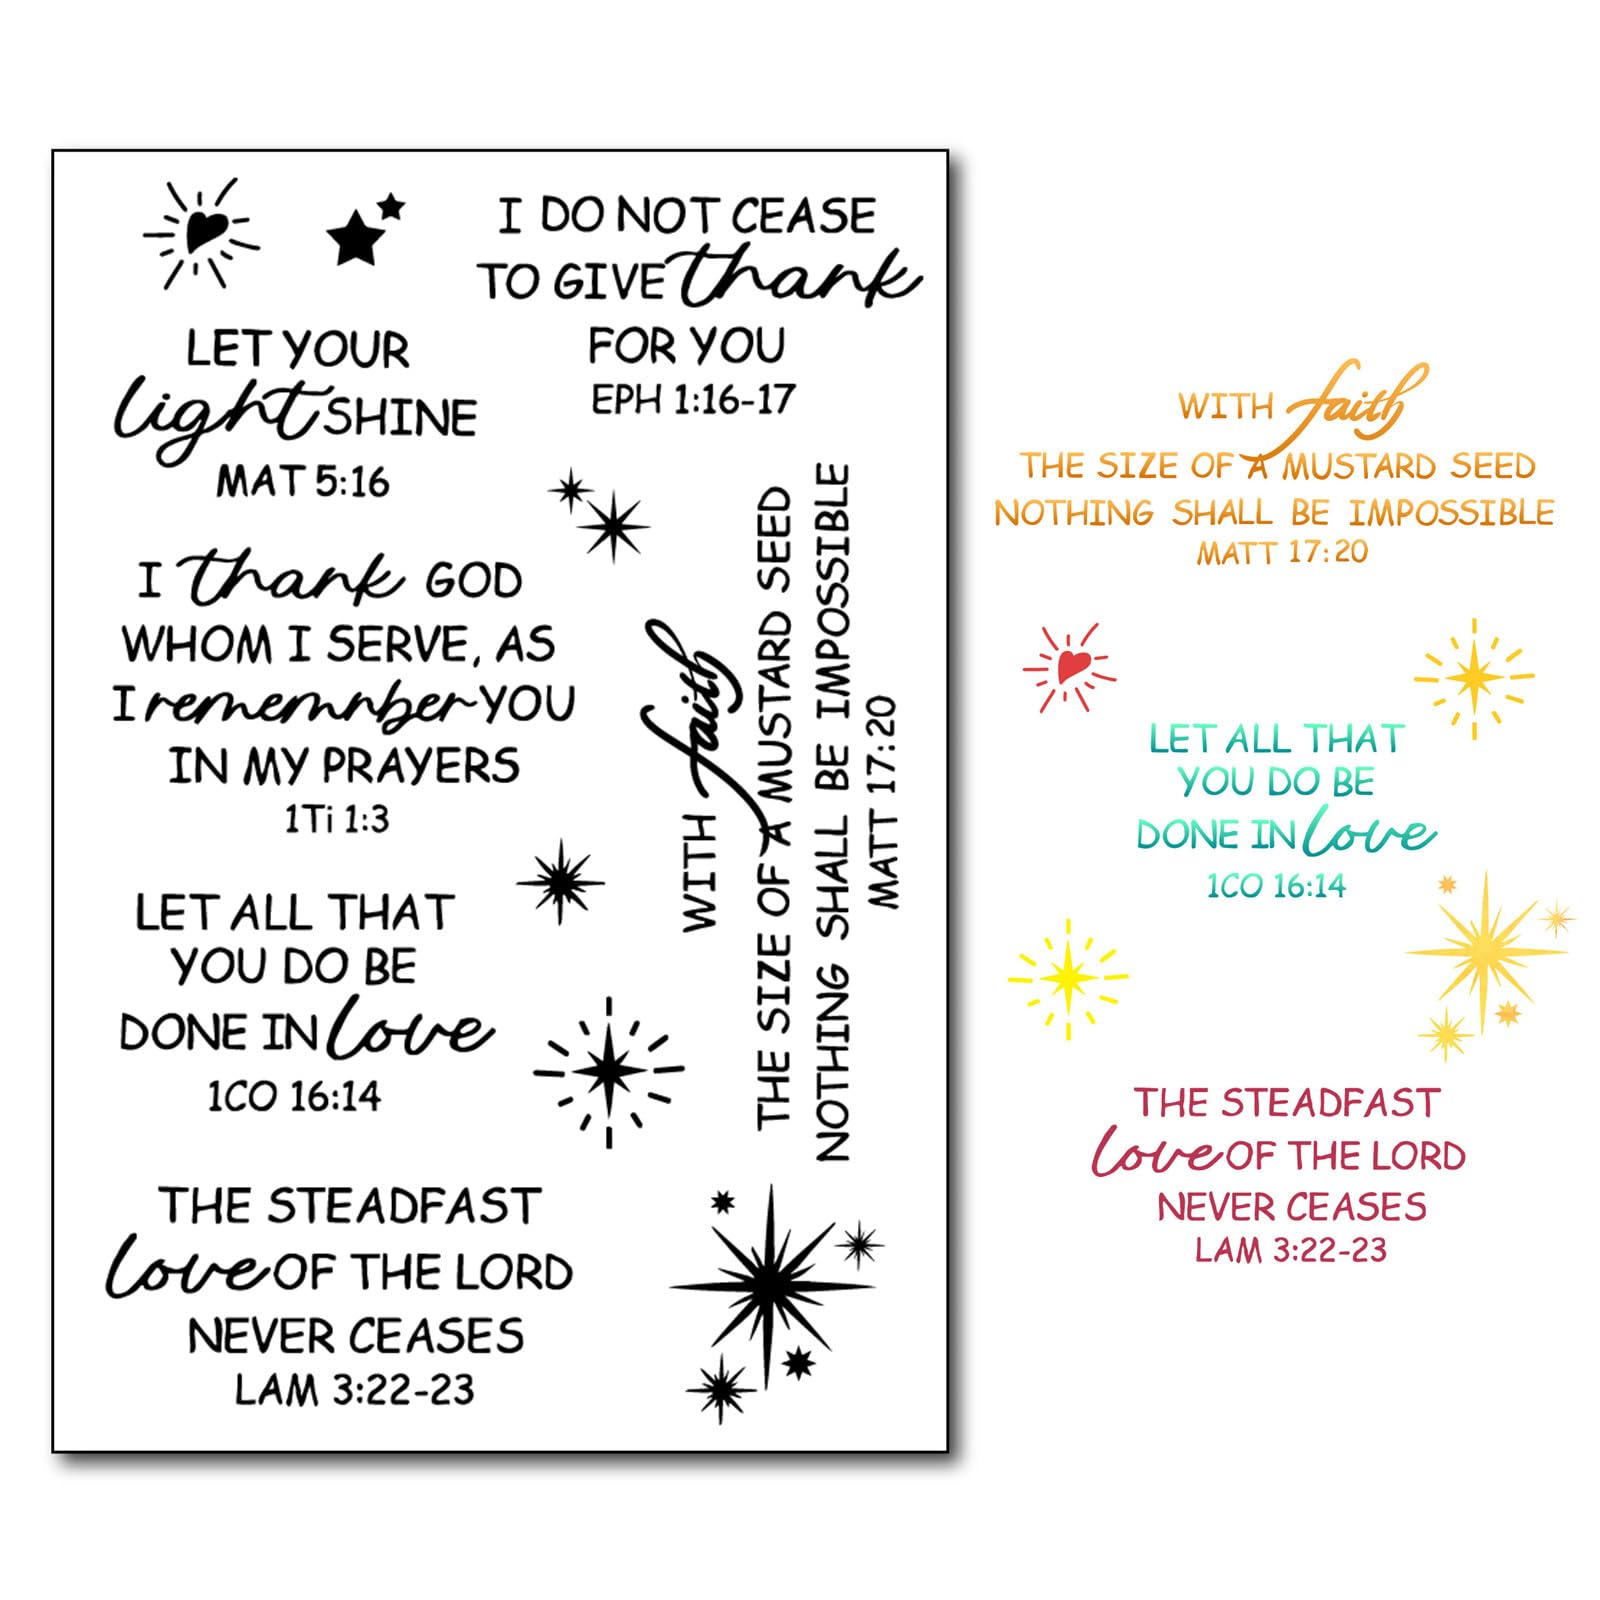 I DO NOT CEASE
TO GIVE thank
FOR YOU
EPH 1:16-17
LET YOUR
light SHINE
MAT 5:16
I thank GOD
WHOM I SERVE, AS
I rememnber YOU
IN MY PRAYERS
1Ti 1:3
LET ALL THAT
YOU DO BE
DONE IN love
1CO 16:14
THE STEADFAST
love OF THE LORD
NEVER CEASES
LAM 3:22-23
WITH faith
THE SIZE OF A MUSTARD SEED
NOTHING SHALL BE IMPOSSIBLE
MATT 17:20
WITH faith
THE SIZE OF A MUSTARD SEED
NOTHING SHALL BE IMPOSSIBLE
MATT 17:20
LET ALL THAT
YOU DO BE
DONE IN love
1CO 16:14
THE STEADFAST
love OF THE LORD
NEVER CEASES
LAM 3:22-23